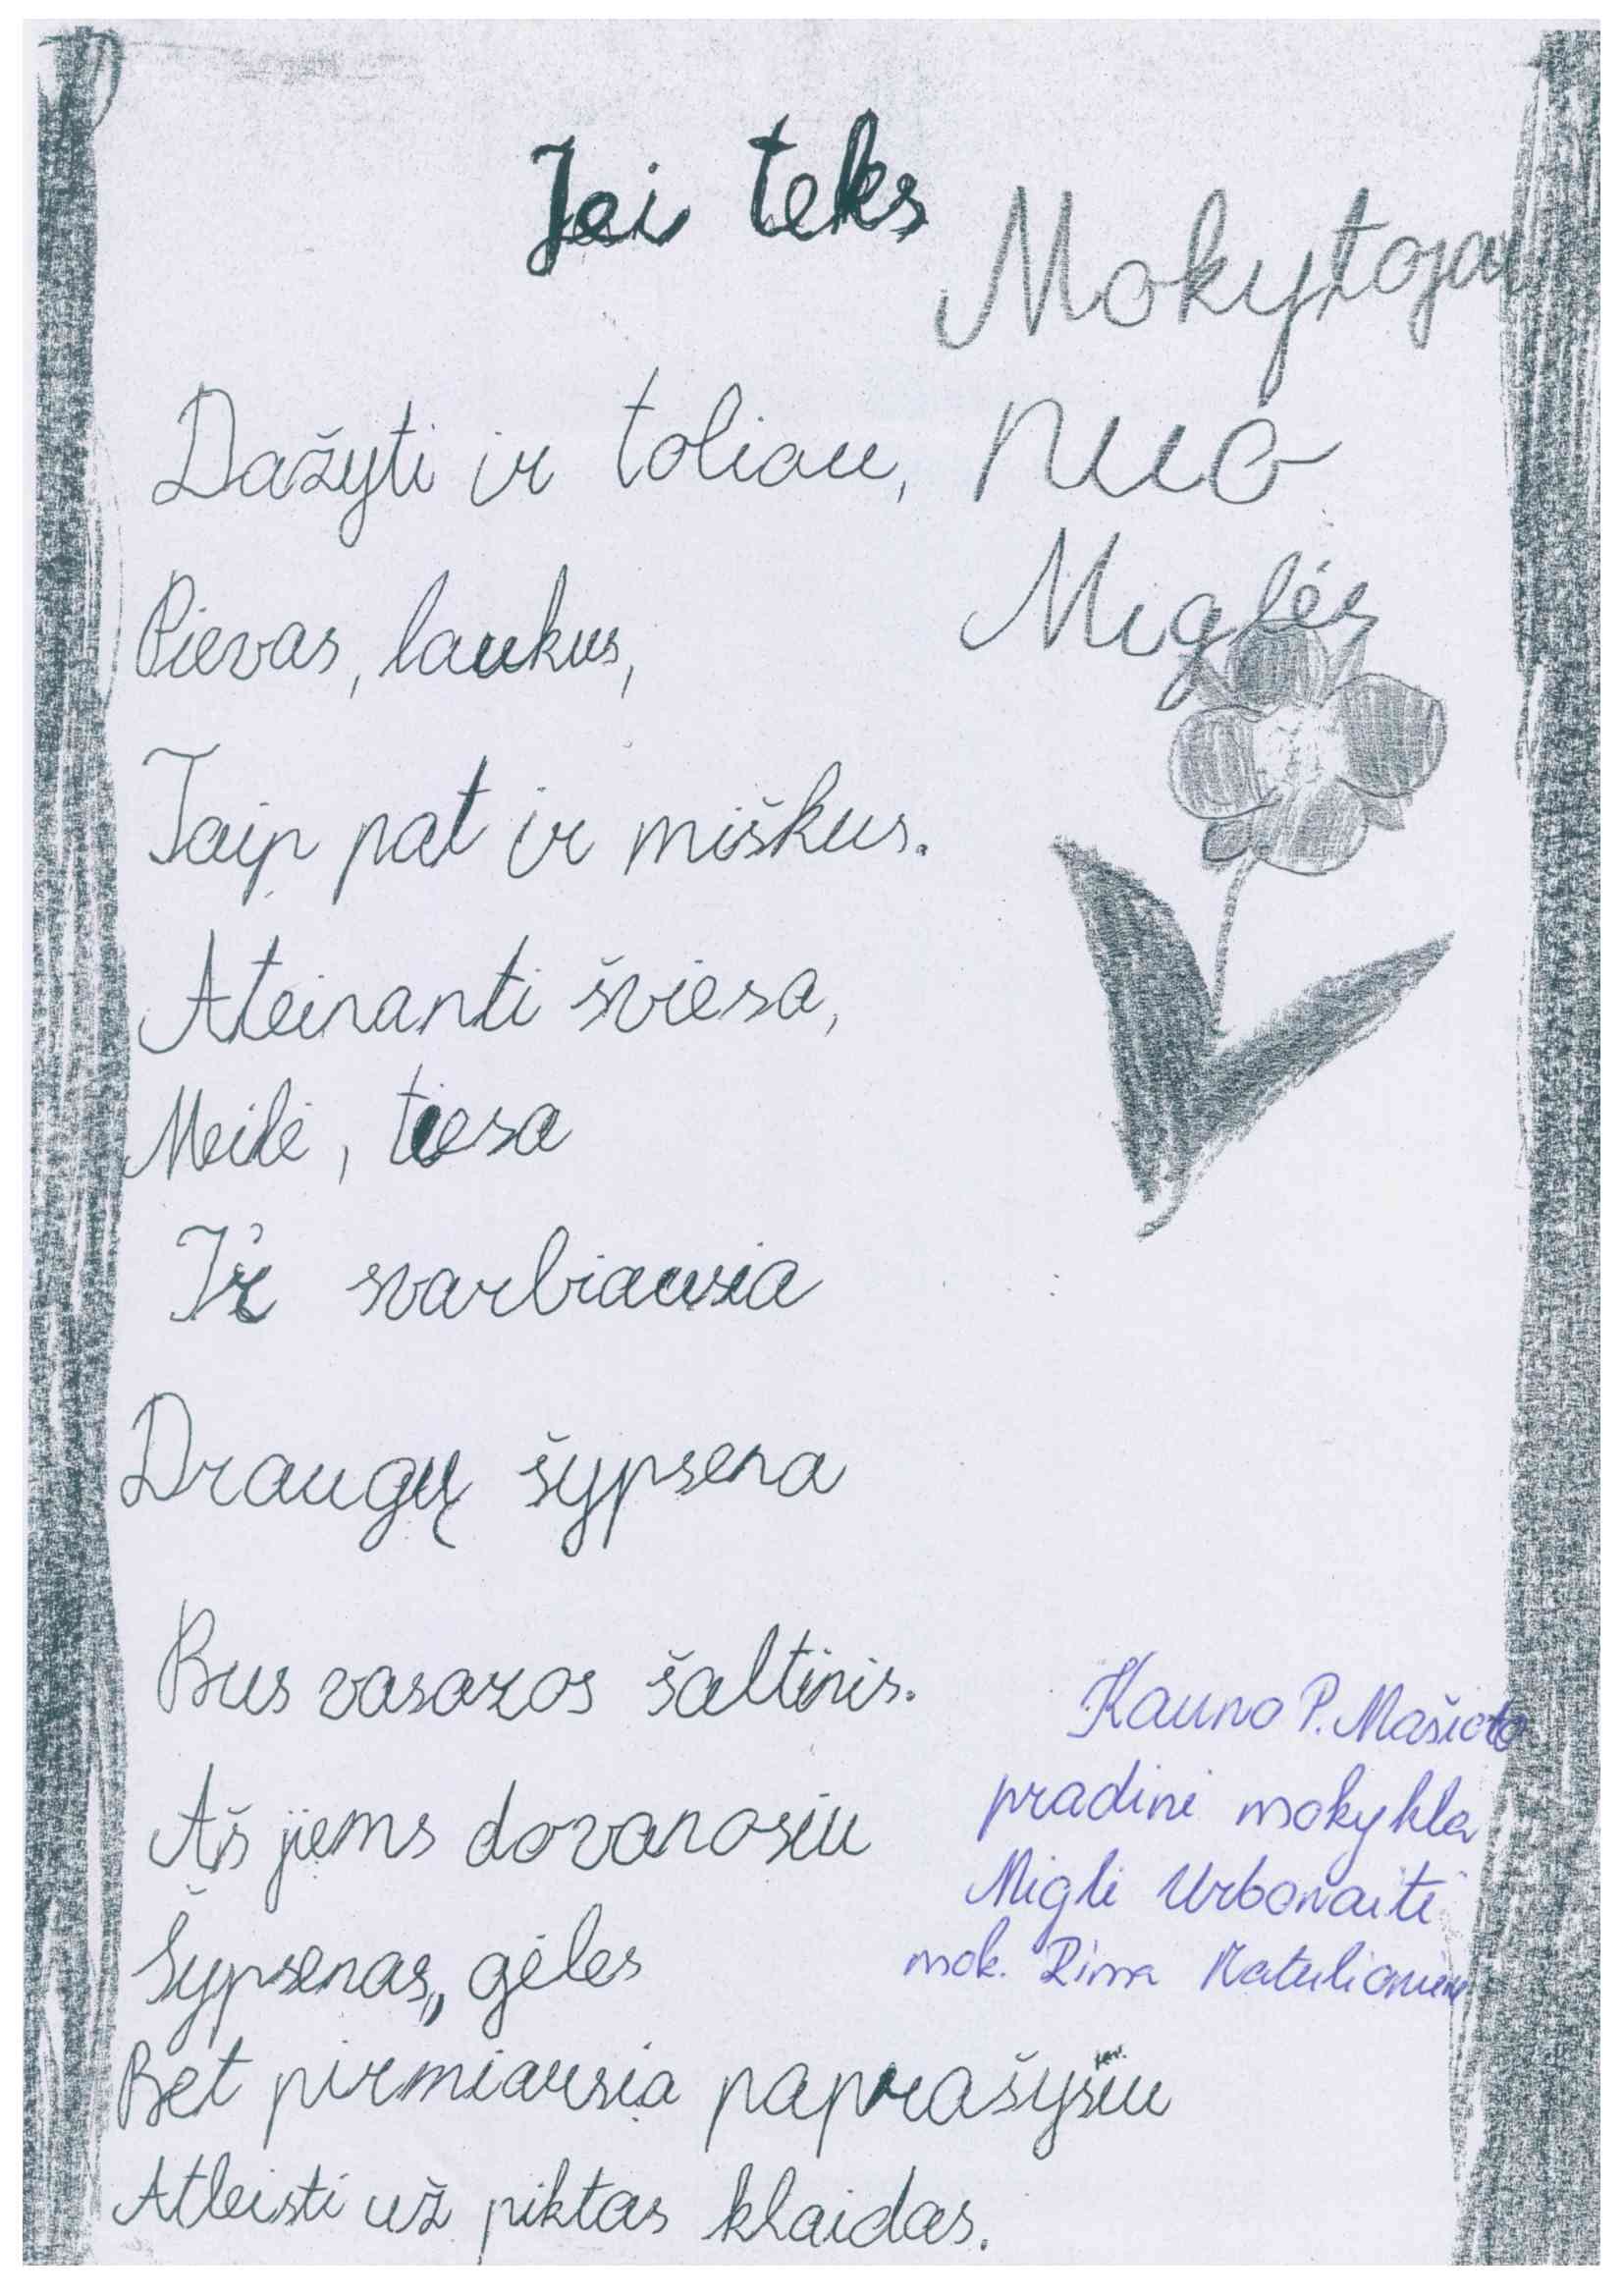 Jei teks
Mokytojai
nuo
Miglės
Dažyti ir toliau,
Pievas, laukus,
Taip pat ir miškus.
Ateinanti šviesa,
Meilė, tiesa
Ir svarbiausia
Draugų šypsena
Bus vasaros šaltinis.
Aš jiems dovanosiu
Šypsenas,, gėles
Bet pirmiausia paprašysiu
Atleisti už piktas klaidas.
Kauno P. Mašioto
pradinė mokykla
Miglė Urbonaitė
mok. Rima Matulionienė